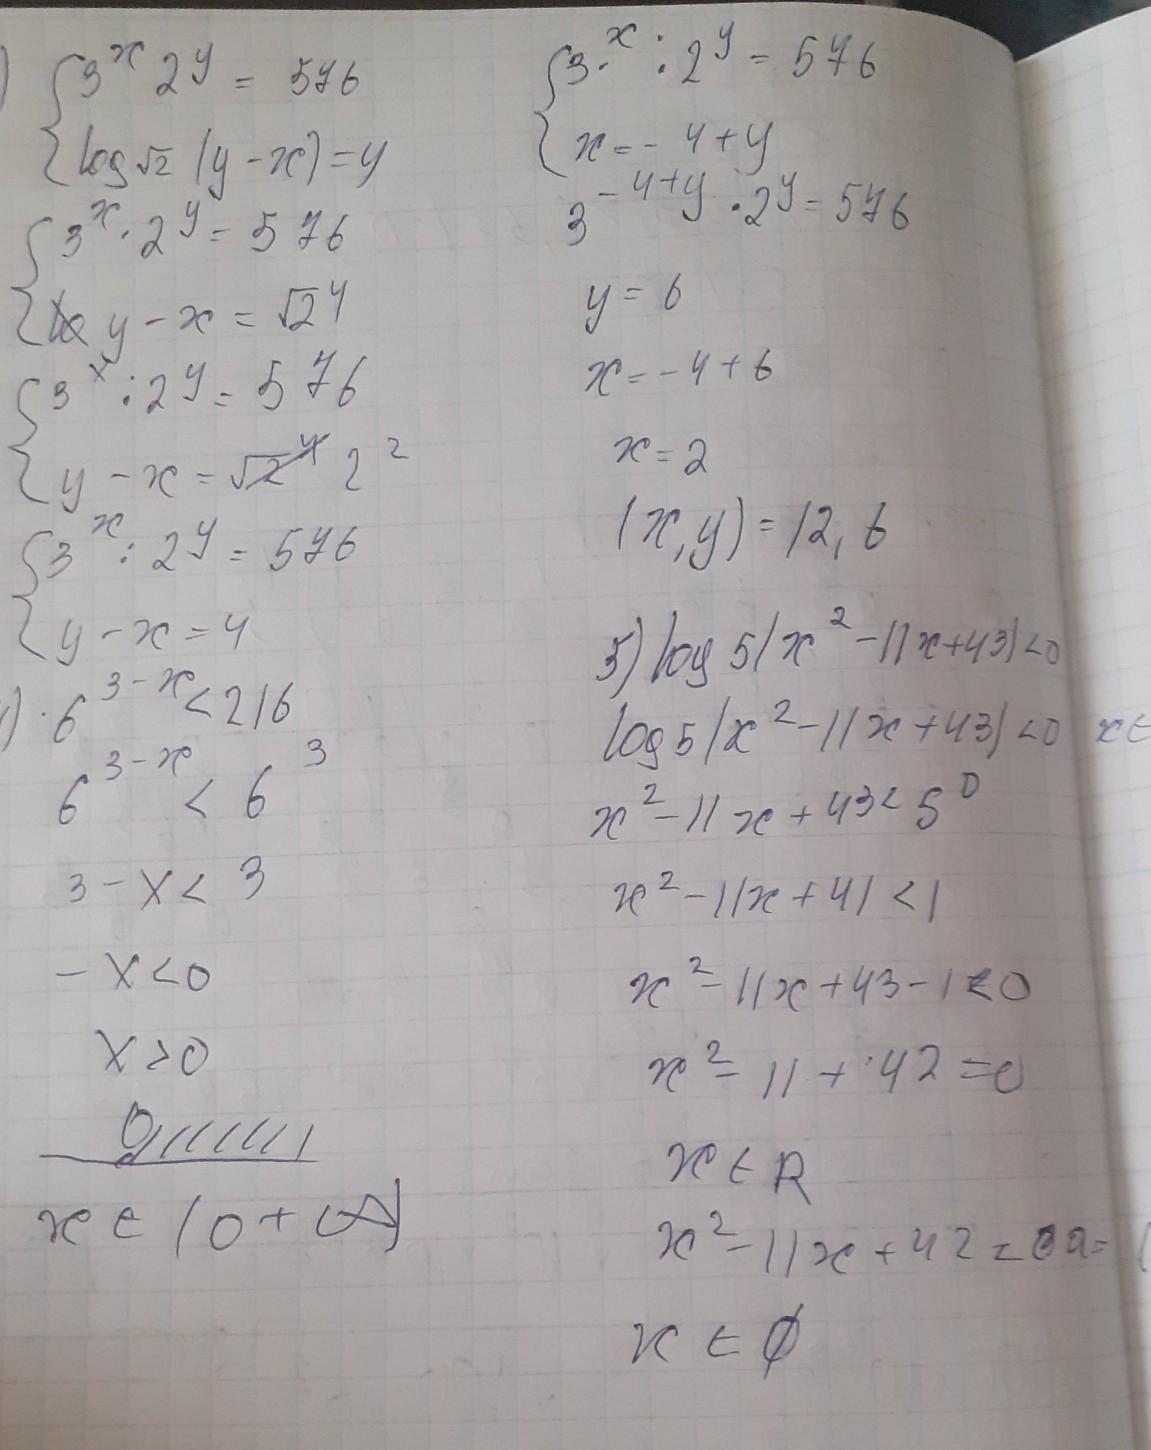 ) { 3^x 2^y = 576
log√2 (y - x) = 4
{ 3^x · 2^y = 576
y - x = √2^4
{ 3^x : 2^y = 576
y - x = 2^2
{ 3^x : 2^y = 576
y - x = 4
) · 6^3-x < 216
6^3-x < 6^3
3 - x < 3
- x < 0
x > 0
0
x ∈ (0 + ∞)
{ 3·^x : 2^y = 576
x = - 4 + y
3^-4+y · 2^y = 576
y = 6
x = - 4 + 6
x = 2
(x, y) = (2, 6
5) log 5 (x^2 - 11x + 43) < 0
log 5 (x^2 - 11x + 43) < 0 x ∈
x^2 - 11x + 43 < 5^0
x^2 - 11x + 41 < 1
x^2 - 11x + 43 - 1 < 0
x^2 - 11 + 42 = 0
x ∈ R
x^2 - 11x + 42 = 0 a = (
x ∈ ∅